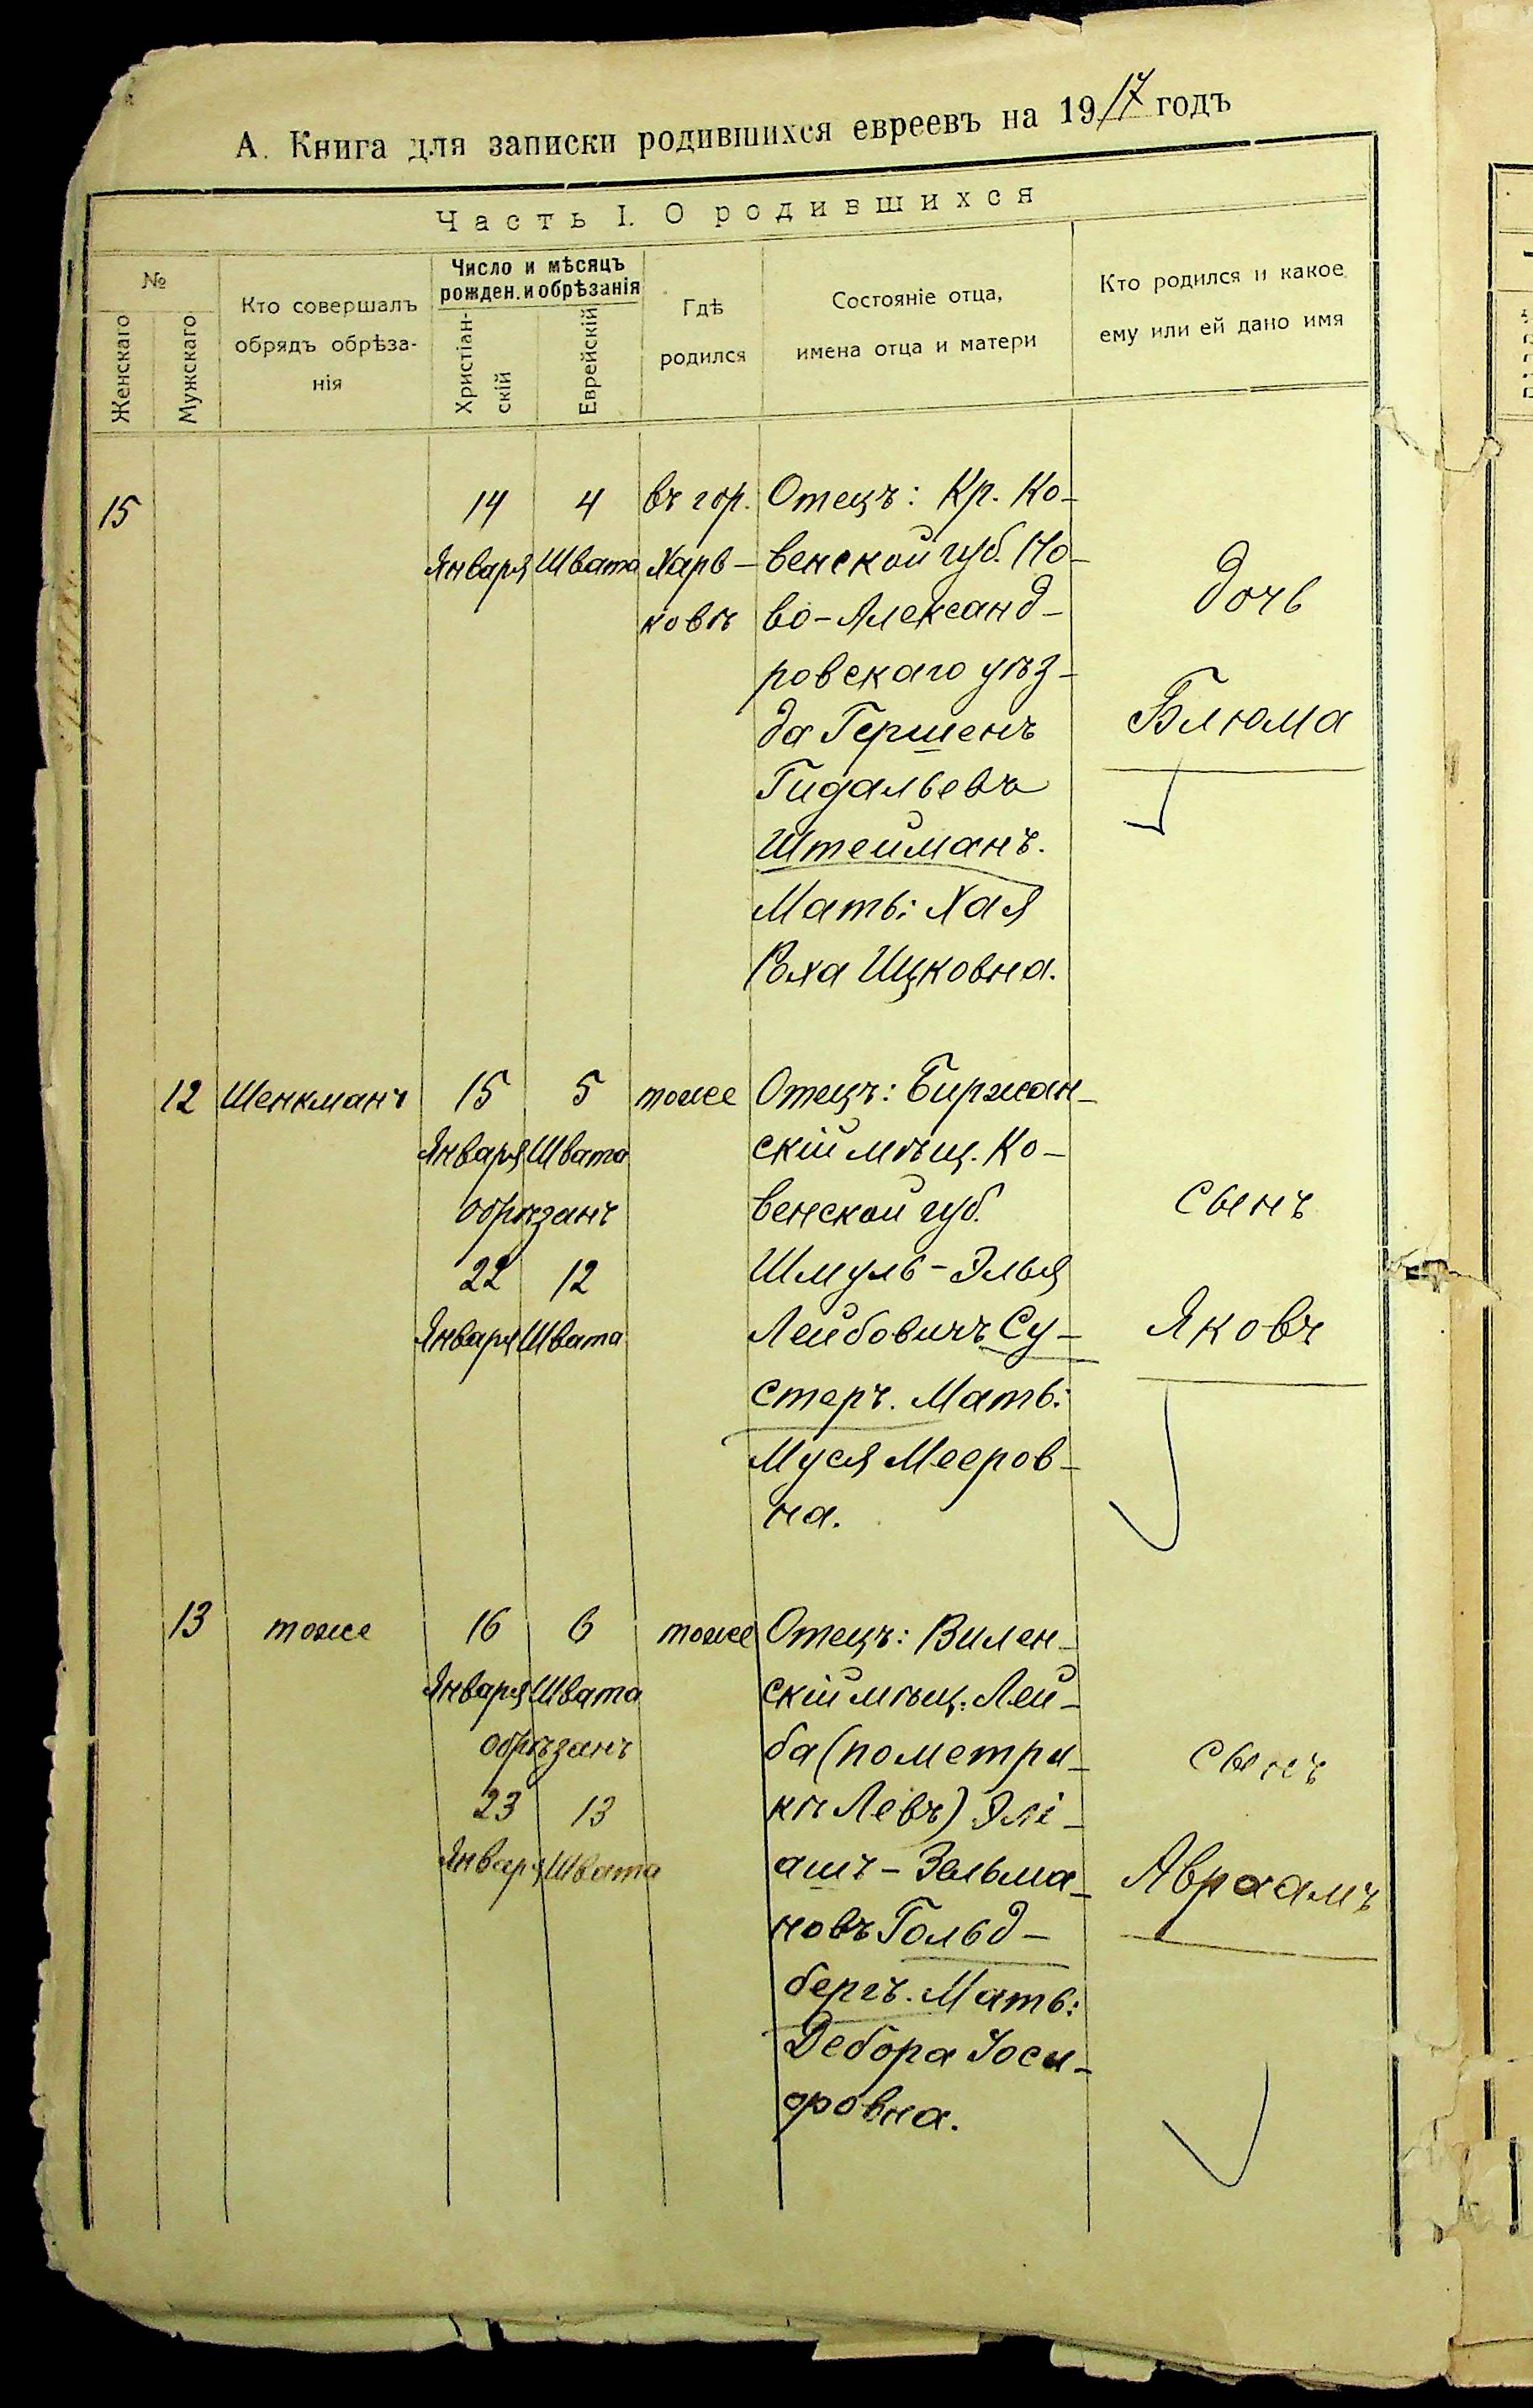 А. Книга для записки родившихся евреевъ на 1917 годъ
Часть I. О родившихся
№
Женскаго
Мужскаго
Кто совершалъ
обрядъ обрѣза-
нія
Число и мѣсяцъ
рожден. и обрѣзанія
Христіан-
скій
Еврейскій
Гдѣ
родился
Состояніе отца,
имена отца и матери
Кто родился и какое
ему или ей дано имя
15
14
Января
4
Швата
въ гор.
Харь-
ковѣ
Отецъ: Кр. Ко-
венской губ. Но-
во-Александ-
ровскаго уѣз-
да Гершенъ
Гидальевъ
Штейманъ.
Мать: Хая
Роха Ицковна.
дочь
Блюма
12
Шенкманъ
15
Января
5
Швата
обрѣзанъ
22
12
Января
Швата
тоже
Отецъ: Биржан-
скій мѣщ. Ко-
венской губ.
Шмуль-Элья
Лейбовичъ Су-
стеръ. Мать:
Муся Мееров-
на.
сынъ
Яковъ
13
тоже
16
Января
6
Швата
обрѣзанъ
23
13
Января
Швата
тоже
Отецъ: Вилен-
скій мѣщ. Лей-
ба (по метри-
кѣ Левъ) Элі-
ашъ-Зельма-
новъ Гольд-
бергъ. Мать:
Дебора Іоси-
фовна.
сынъ
Авраамъ